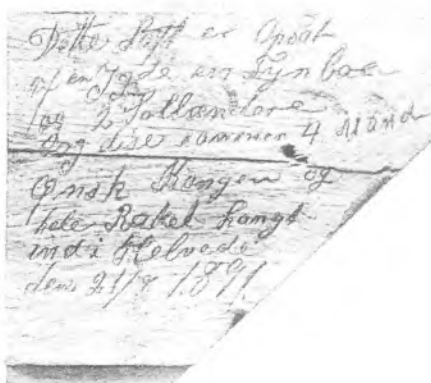 Dette Loft er Opsat
af en Jyde en Fynboe
og 2 Sollændere
Ong disse sammen 4 Mand
Ønsk Kongen og
hele Rakel hangt
ind i Helvede
den 21/8 1891.